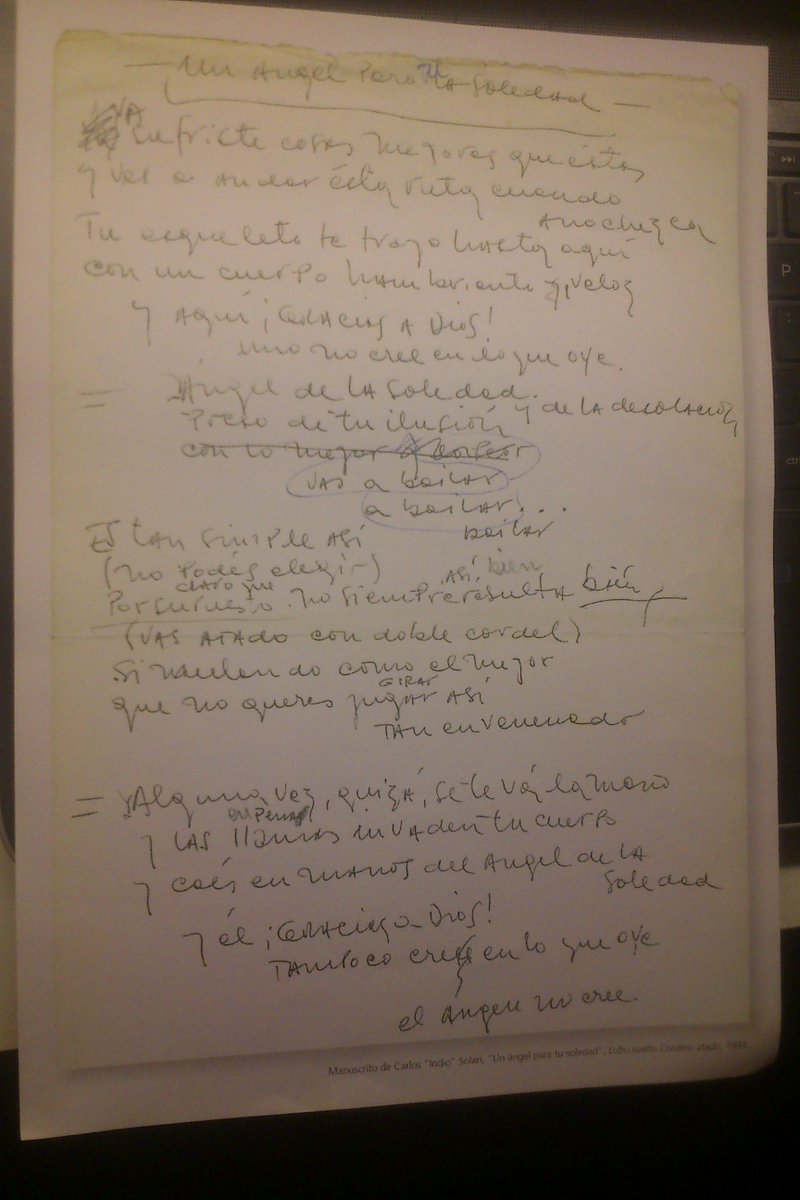 — Un Angel Para Tu LA Soledad —
YA sufriste cosas mejores que éstas
y vas a andar ésta ruta cuando
anochezca
Tu esqueleto te trajo hasta aquí
con un cuerpo hambriento y, veloz
y AQUÍ ¡GRACIAS A DIOS!
uno no cree en lo que oye.
= Ángel de LA Soledad.
y de LA desolación
Preso de tu ilusión
con lo mejor
VAS a bailar
a bailar...
bailar
Es tan simple ASÍ
(no Podés elegir)
CLARO que ASÍ bien
Por supuesto no siempre resulta bién
(VAS ATADO con doble cordel)
Simulando como el mejor
GIRAR
que no queres jugar ASÍ
TAn envenenado
= Alguna vez, quizÁ, se te vá la mano
en Penas
y LAS llamas invaden tu cuerpo
y caés en mANOS del Angel de LA
Soledad
y él ¡GRACIAS a Dios!
TAMPOCO cree en lo que oye
el Ángel no cree.
Manuscrito de Carlos "Indio" Solari, "Un ángel para tu soledad", Lobo suelto Cordero atado, 1993.
P
ctrl